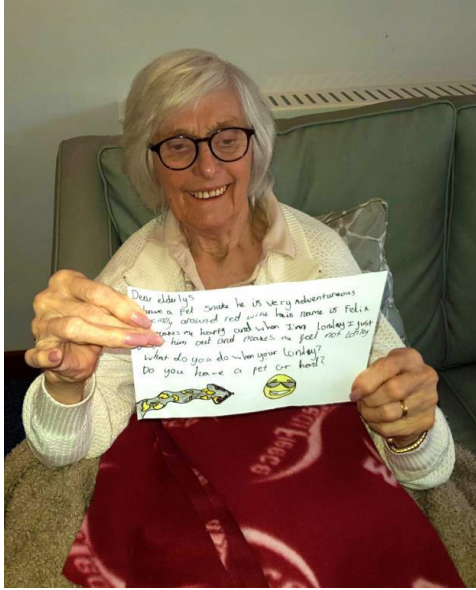 Dear elderlys
have a Pet snake he is very adventureous
around red wine hais name is Felix
makes me happy and when I'm londey I just
him out and makes me feel not londey
what do you do when your londey?
Do you have a pet or had?